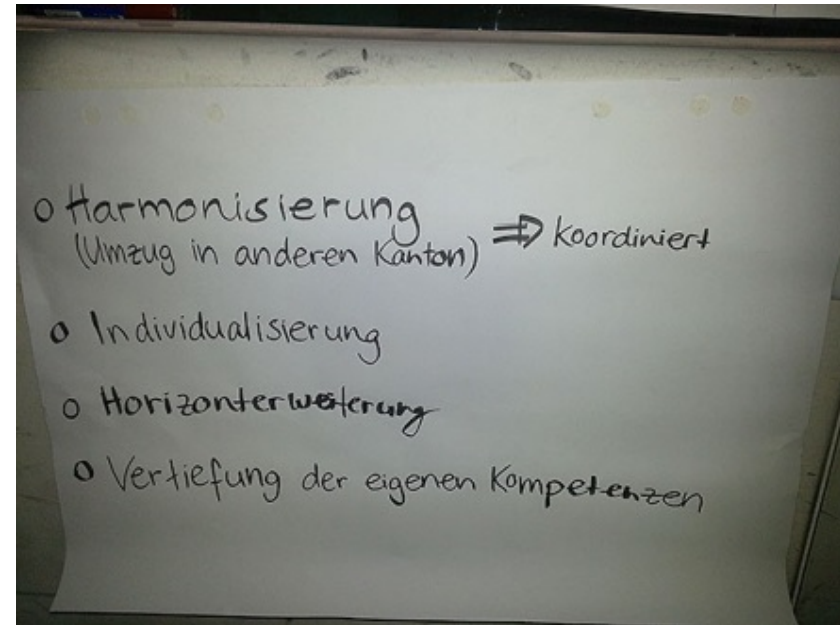 o Harmonisierung
(Umzug in anderen Kanton) ⇒ koordiniert
o Individualisierung
o Horizonterweiterung
o Vertiefung der eigenen Kompetenzen